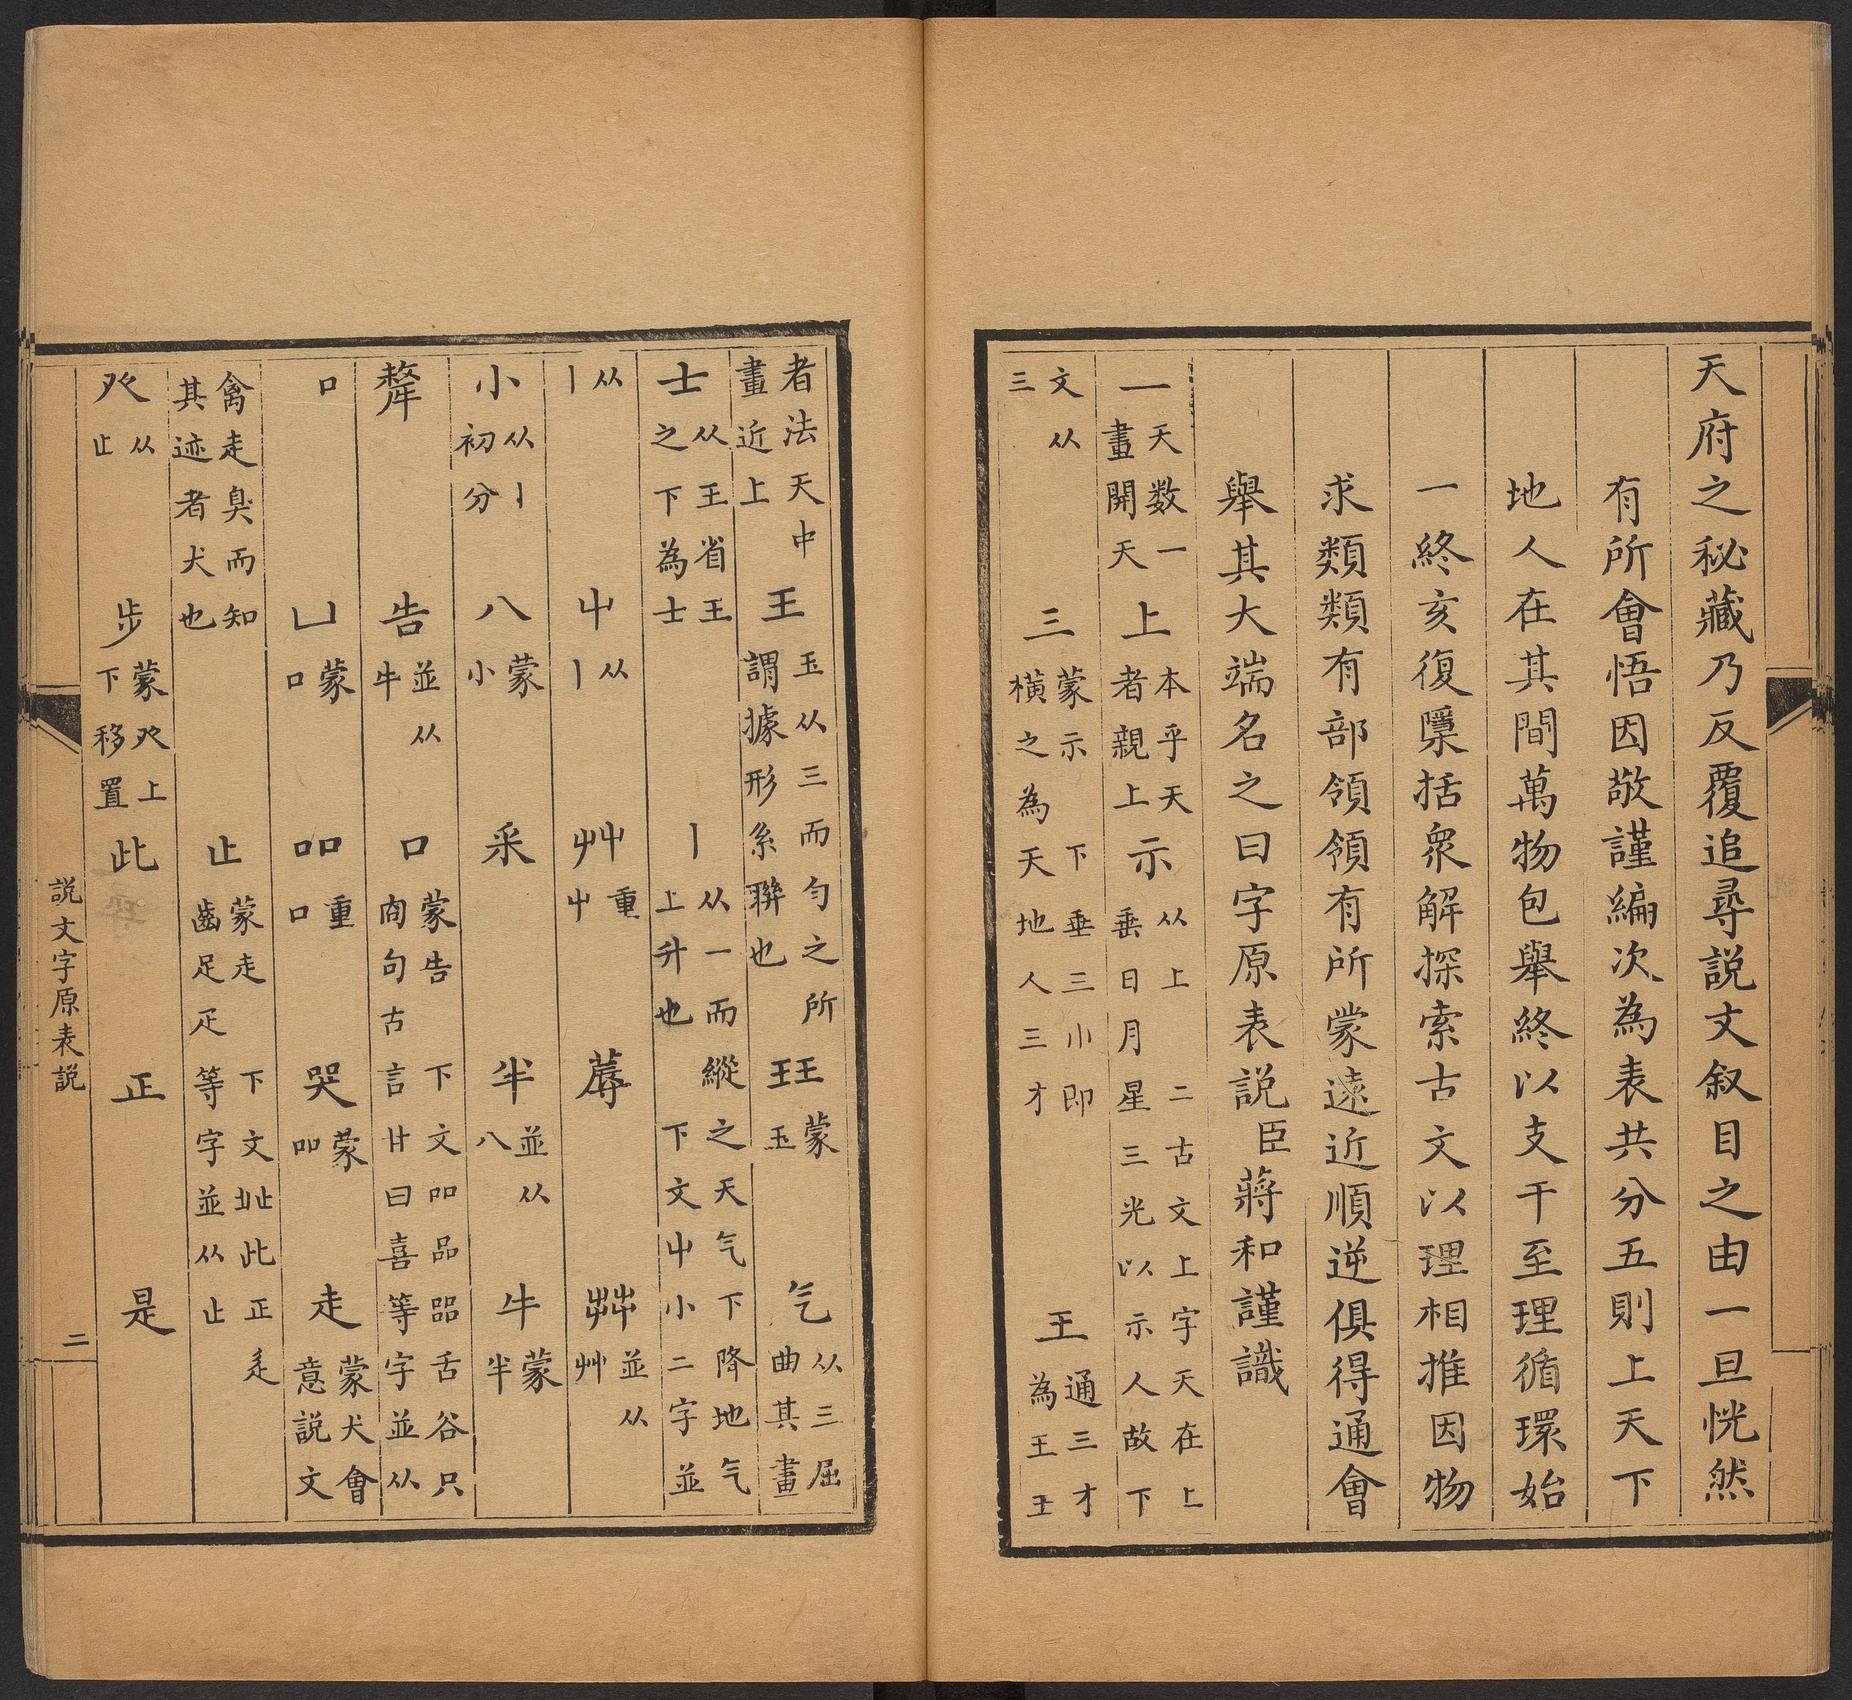 天府之秘藏乃反覆追尋説文叙目之由一旦恍然
有所會悟因敬謹編次為表共分五則上天下
地人在其間萬物包舉終以支干至理循環始
一終亥復檃括衆解探索古文以理相推因物
求類類有部領領有所蒙遠近順逆俱得通會
舉其大端名之曰字原表説臣蔣和謹識
一天数一畫開天上本乎天者親上示从上二古文上字天在上垂日月星三光以示人故下
文从三三蒙示下垂三小即橫之為天地人三才王通三才為王王
者法天中畫近上王玉从三而勻之所謂據形系聯也玨蒙玉气从三屈曲其畫
士从王省王之下為士丨从一而縱之天气下降地气上升也下文屮小二字並
从丨屮从丨艸重屮蓐茻並从艸
小从丨初分八蒙小釆半並从八牛蒙半
犛告並从牛口蒙告下文吅品㗊舌谷只㕯句古言廿曰喜等字並从
口凵蒙口吅重口哭蒙吅走蒙犬會意説文
禽走臭而知其迹者犬也止蒙走下文址此正辵齒足疋等字並从止
癶从止步蒙癶上下移置此正是
説文字原表説 二